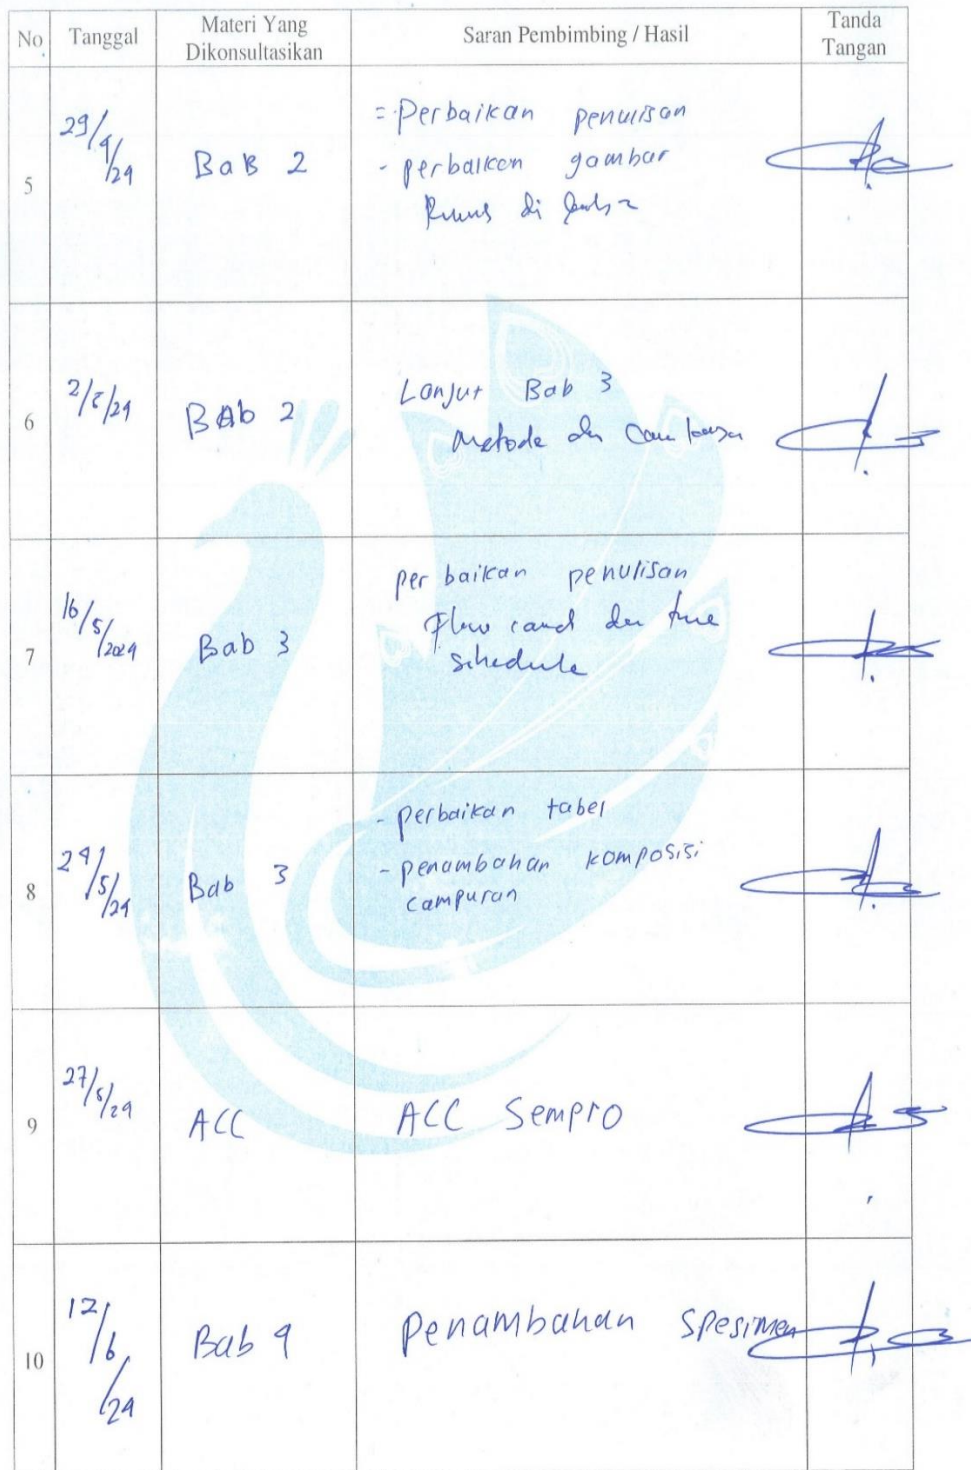 No Tanggal Materi Yang Dikonsultasikan Saran Pembimbing / Hasil Tanda Tangan
5 29/4/24 BaB 2
= Perbaikan penulisan
- perbaikan gambar
Rumus di
6 2/5/24 BAb 2
Lanjut Bab 3
metode dan cara
7 16/5/2024 Bab 3
perbaikan penulisan
Flow dan time
schedule
8 24/5/24 Bab 3
- perbaikan tabel
- penambahan komposisi
campuran
9 27/5/24 ACC ACC Sempro
10 12/6/24 Bab 4 Penambahan Spesimen